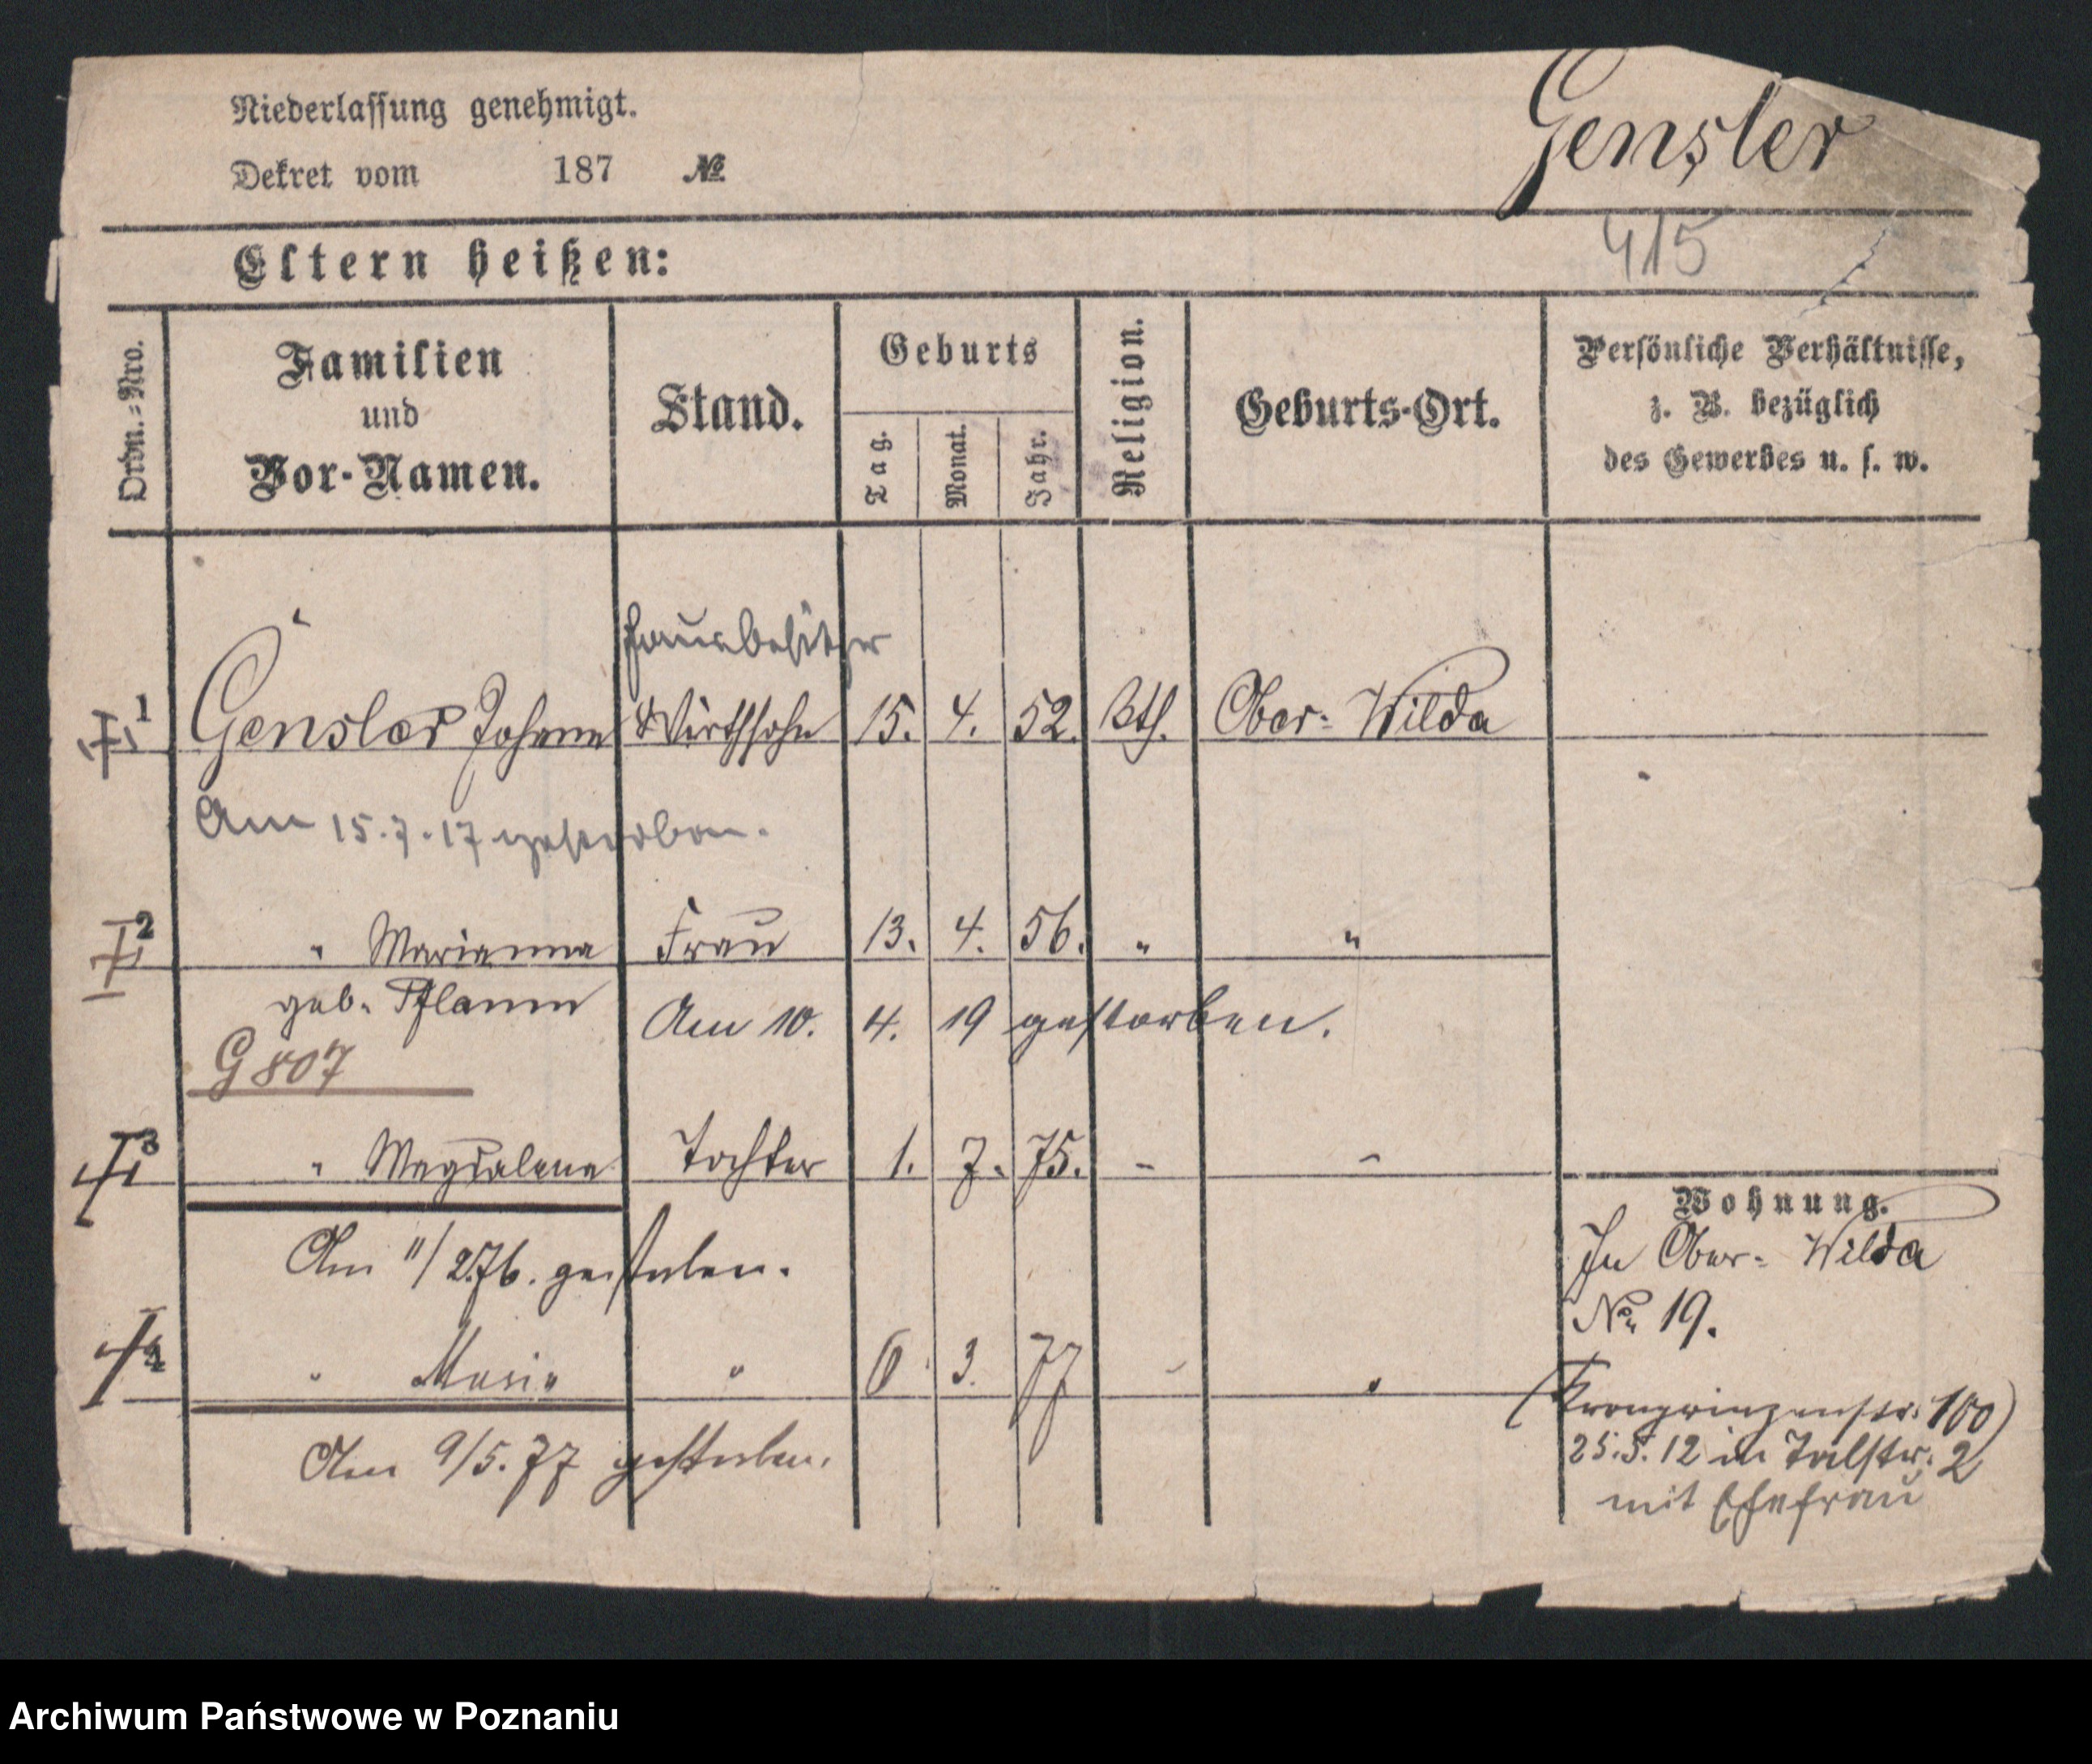 Niederlassung genehmigt.
Gensler
Dekret vom 187 №
415
Eltern heißen:
Ordn.=Nro.
Familien
und
Vor-Namen.
Stand.
Geburts
Tag.
Monat.
Jahr.
Religion.
Geburts-Ort.
Persönliche Verhältnisse,
z. B. bezüglich
des Gewerbes u. s. w.
Hausbesitzer
1 Gensler Johann Wirthssohn 15. 4. 52. Kth. Ober-Wilda
Am 15.7.17 gestorben.
2 " Marianna Frau 13. 4. 56. " "
geb. Pflaum
Am 10. 4. 19 gestorben.
G 807
3 " Magdalena Tochter 1. 7. 75. - -
Am 11/2.76. gestorben.
4 " Maria " 6 3. 77 " "
Am 9/5.77 gestorben.
Wohnung.
In Ober-Wilda
No. 19.
(Kronprinzenstr. 100)
25.5.12 in Talstr. 2
mit Ehefrau
Archiwum Państwowe w Poznaniu